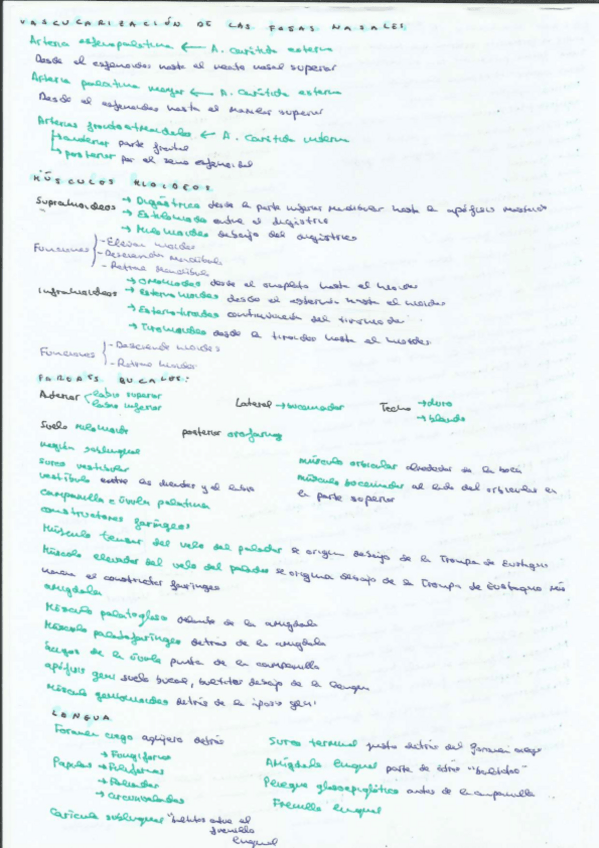 VASCULARIZACIÓN DE LAS FOSAS NASALES
Arteria esfenopalatina ← A. Carótida externa
Desde el esfenoides hasta el meato nasal superior
Arteria palatina mayor ← A. Carótida externa
Desde el esfenoides hasta el maxilar superior
Arterias frontoetmoidales ← A. Carótida interna
→ anterior parte frontal
→ posterior por el seno esfenoidal
MÚSCULOS HIOIDEOS
Suprahioideos → Digástrico desde la parte inferior mandibular hasta la apófisis mastoides
→ Estilohioideo entre el digástrico
→ Milohioideo debajo del digástrico
Funciones - Elevan hioides
- Descienden Mandíbula
- Retrae Mandíbula
→ Omohioideo desde el omoplato hasta el hioides
Infrahioideos → esternohioideo desde el esternón hasta el hioides
→ Esternotiroideo continuación del tirohioideo
→ Tirohioideo desde la tiroides hasta el hioides
Funciones - Desciende hioides
- Retrae hioides
PAREDES BUCALES:
Anterior labio superior
labio inferior
Lateral → buccinador
Techo → duro
→ blando
Suelo milohioideo
posterior orofaringe
región sublingual
surco vestibular
vestíbulo entre los dientes y el labio
campanilla o úvula palatina
constructores faríngeos
músculo orbicular alrededor de la boca
músculo buccinador al lado del orbicular en
la parte superior
Músculo tensor del velo del paladar se origina debajo de la Trompa de Eustaquio
Músculo elevador del velo del paladar se origina debajo de la Trompa de Eustaquio más
hacia el constrictor faríngeo
amígdala
Músculo palatogloso delante de la amígdala
Músculo palatofaríngeo detrás de la amígdala
de la úvula punta de la campanilla
apófisis geni suelo bucal, bultitos debajo de la lengua
Músculo geniohioideo detrás de la geni
LENGUA
Foramen ciego agujero detrás
→ Fungiformes
Papilas → Filiformes
→ Foliadas
→ Circunvaladas
Carúncula sublingual "bultitos entre el
frenillo
lingual
Surco terminal justo detrás del foramen ciego
Amígdala lingual parte de atrás "bultitos"
Pliegue glosoepiglótico antes de la campanilla
Frenillo lingual